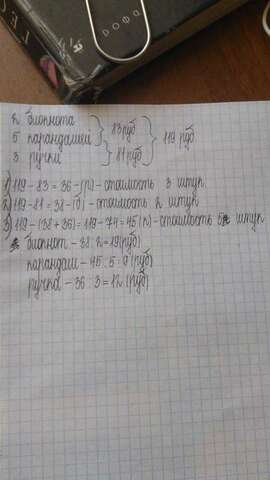 2 блокнота
5 карандашей } 83 руб } 119 руб
3 ручки } 81 руб
1) 119 - 83 = 36 - (р) - стоимость 3 штук.
2) 119 - 81 = 38 - (б) - стоимость 2 штук
3) 119 - (38 + 36) = 119 - 74 = 45 (к) - стоимость 5 штук
блокнот - 38 : 2 = 19 (руб)
карандаш - 45 : 5 = 9 (руб)
ручка - 36 : 3 = 12 (руб)